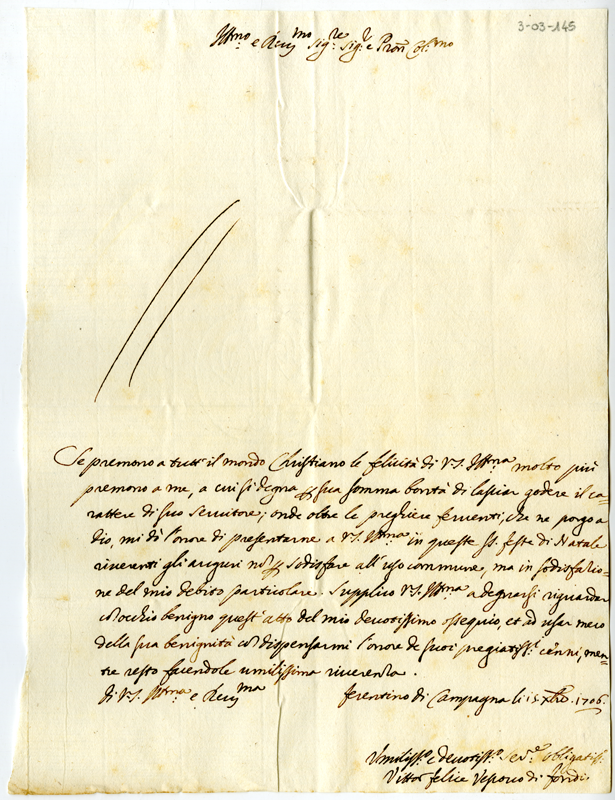 3-03-145
Ill:mo e Reu:mo Sig:re Sig:r e Pron Col:mo
Se premono a tutt' il mondo Christiano le felicità di V.S. Ill:ma molto più
premono a me, a cui si degna p sua somma bontà di lasciar godere il ca=
rattere di suo seruitore; onde oltre le preghiere feruenti, che ne porgo a
Dio, mi dò l'onore di presentarne a V.S. Ill:ma in queste SS. feste di Natale
riuerenti gli auguri nõ p sodisfare all'uso commune, ma in sodisfatio=
ne del mio debito particolare. Supplico V.S. Ill:ma a degnarsi riguardar
cõ occhio benigno quest'atto del mio deuotissimo ossequio, et ad usar meco
della sua benignità cõ dispensarmi l'onore de suoi pregiatiss:i cenni, men=
tre resto facendole umilissima riuerenza.
Di V.S. Ill:ma e Reu:ma Ferentino di Campagna li 15 Xbre 1706.
Umiliss:o e deuotiss:o Ser:e obligatiss:
Vittor Felice Vescouo di Fondi